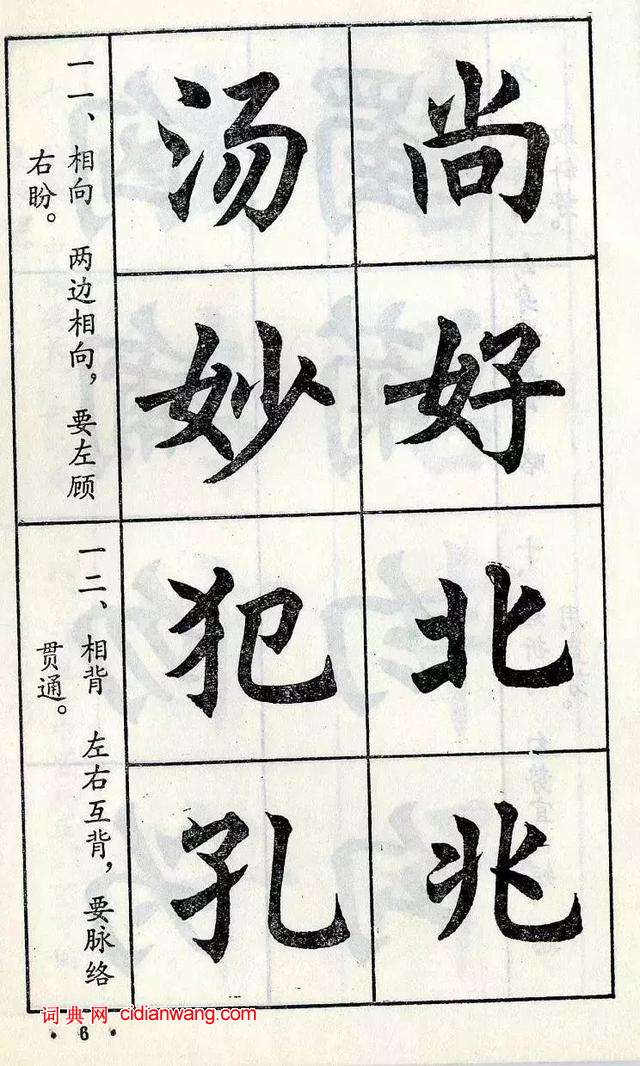 尚好北兆
汤妙犯孔
一一、相向 两边相向，要左顾
右盼。
一二、相背 左右互背，要脉络
贯通。
词典网 cidianwang.com
·6·